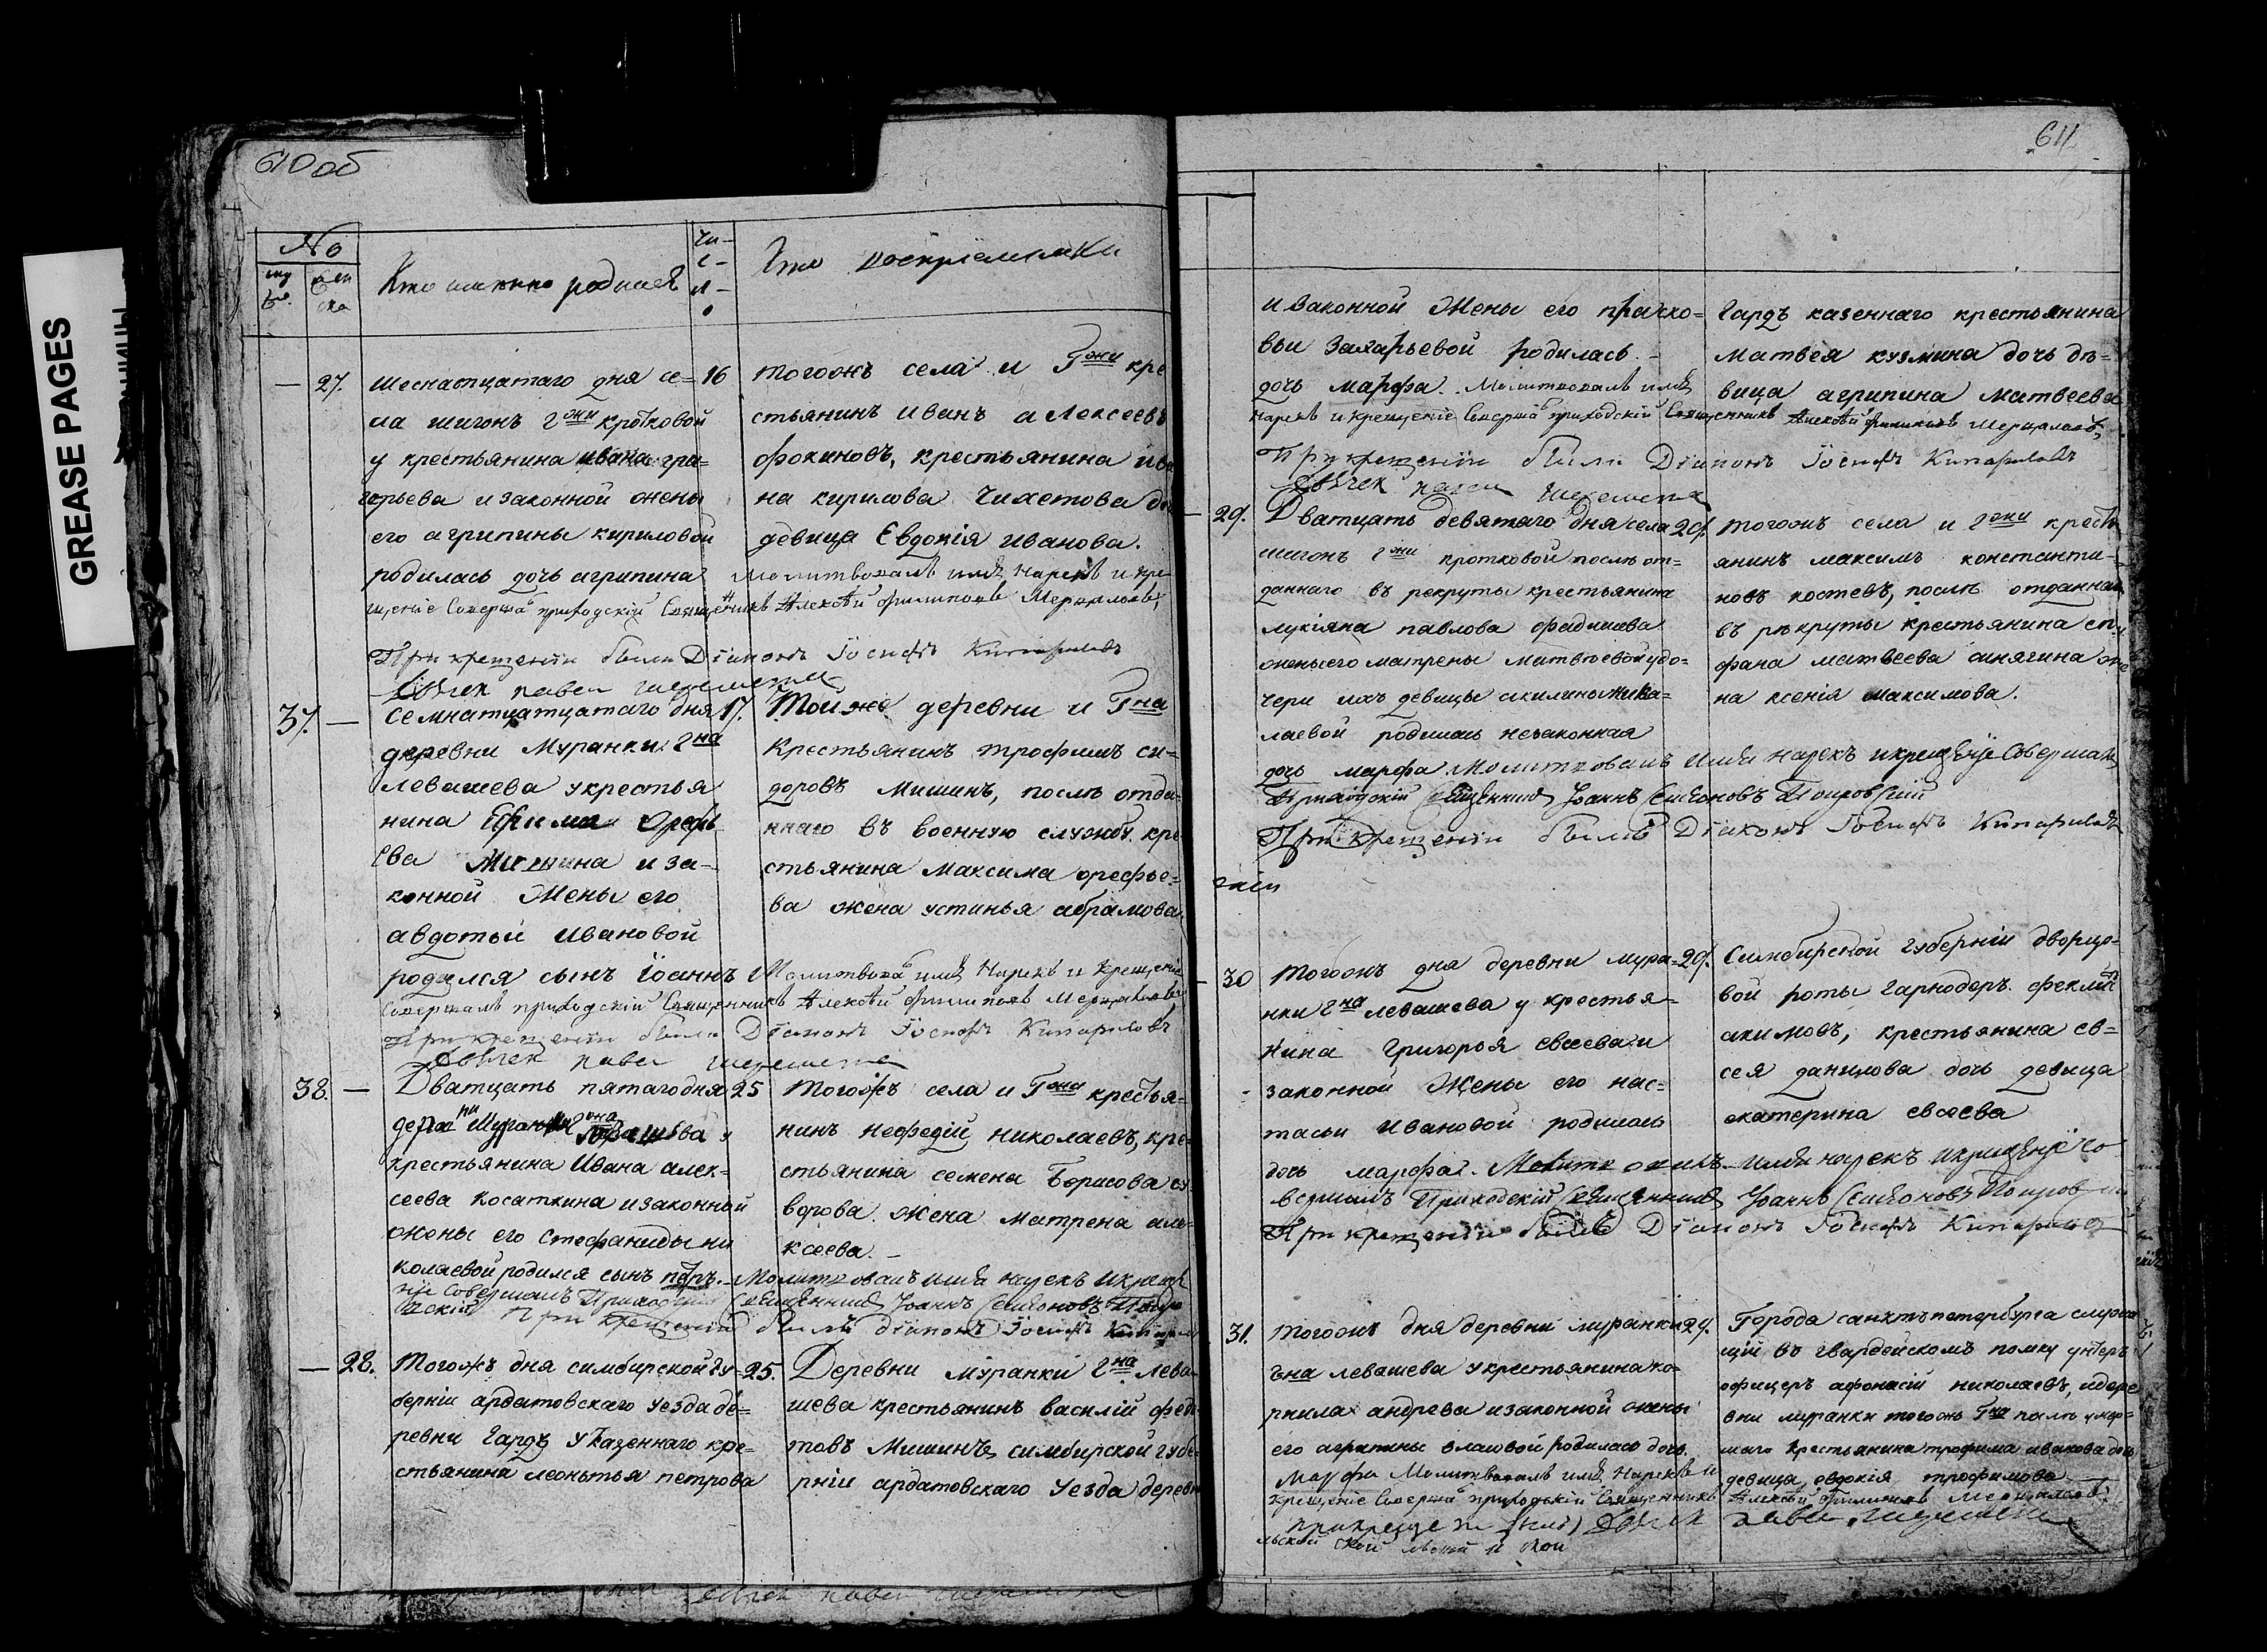 GREASE PAGES
610 об
№
Кто именно родился
Кто воспріемники
27.
шеснатцатаго дня се=
ла шигонъ г.жи кротковой
у крестьянина ивана гри=
горьева и законной жены
его агрипины кириловой
родилась дочь агрипина
16
тогожъ села и Г.жи кре
стьянинъ иванъ алексеевъ
фокиновъ, крестьянина ива
на кирилова чихетова до
девица Евдокія иванова.
Молитвовалъ имя нарекъ и кре
щеніе Соверша приходскій Священникъ Алексѣй Филиповъ Мерцаловъ,
При крещеніи были Діаконъ Іосифъ Кипарисовъ
37.
Семнатцатцатаго дня
деревни Муранки г.на
левашева укрестья
нина Ефима Ореф
ева Мишина и за-
конной жены его
авдотьи ивановой
родился сынъ Іоаннъ
17.
Той же деревни и Г.на
Крестьянинъ трофимъ си=
доровъ Мишинъ, послѣ отда=
ннаго въ военную службу кре
стьянина Максима орефье=
ва жена устинья абрамова
Молитвова имя Нарекъ и Крещеніе
Совершалъ приходскій Священникъ Алексѣй Филиповъ Мерцаловъ
При крещеніи были Діаконъ Іосифъ Кипарисовъ
38.
Дватцать пятаго дня
крестьянина Ивана алек=
сеева косаткина изаконной
жены его Стефаниды ни
колаевой родился сынъ петръ.
25
Тогожъ села и Г.жи крестья=
нинъ нефедій николаевъ, кре=
стьянина семена Борисова су
ворова. жена матрена але
ксеева.
Молитвовалъ имя нарекъ икреще
ніе Совершалъ Приходскій Священникъ Іоаннъ Симіоновъ
При крещеніи былъ діаконъ Іосифъ
28.
Тогожъ дня симбирской гу=
берніи ардатовскаго уезда де=
ревни Гардъ у казеннаго кре=
стьянина леонтья петрова
25.
Деревни муранки г.на Лева
шева крестьянинъ василій федо
товъ Мишинъ, симбирской губе
рніи ардатовскаго уезда дерев
611.
и законной жены его праско=
вьи захарьевой родилась
дочь марфа. Молитвовалъ имя
Гардъ казеннаго крестьянина
матвея кузмина дочь дѣ=
вица агрипина матвеева
нарекъ и крещеніе Соверша приходскій Священникъ Алексѣй Филиповъ Мерцаловъ,
При крещеніи были Діаконъ Іосифъ Кипарисовъ
29.
Дватцать девятаго дня села
шигонъ г.жи кротковой послѣ от=
даннаго въ рекруты крестьянина
лукіяна павлова фадишева
жены его матрены матвѣевой удо=
чери ихъ девицы акилины нико=
лаевой родилась незаконная
дочь марфа.
29.
тогожъ села и г.жи кресть
янинъ максимъ константи=
новъ костевъ, послѣ отданнаго
въ рѣкруты крестьянина сте
фана матвеева синягина
на ксенія максимова.
Молитвовалъ имя нарекъ икрещеніе Совершалъ
Приходскій Священникъ Іоаннъ Симіоновъ Покровскій
При крещеніи былъ Діаконъ Іосифъ Кипарисовъ
30
тогожъ дня деревни мура=
нки г.на левашева у крестья=
нина Григорья евсева и
законной жены его нас=
тасьи ивановой родилась
дочь марфа.
29.
Симбирской губерніи дворцо=
вой роты гарнодеръ феклис
акимовъ, крестьянина ев=
сея данилова дочь девица
екатерина евсеева
Молитвовалъ имя нарекъ икрещеніе со
вершалъ Приходскій Священникъ Іоаннъ Симіоновъ
При крещеніи былъ Діаконъ Іосифъ Кипарисовъ
31.
тогожъ дня деревни муранки
г.на левашева укрестьянина ко=
рнила андрева изаконной жены
его агрипины власовой родилась дочь
Марфа Молитвовалъ имя Нарекъ и
29.
Города санктъпетербурга служа
щій въ гвардейскомъ полку унтеръ
офицеръ афонасій николаевъ, идере
вни муранки тогожъ Г.на послѣ умер=
шаго крестьянина трофима ивакова дочь
девица евдокія трофимова
Крещеніе Соверша приходскій Священникъ Алексѣй Филиповъ Мерцаловъ